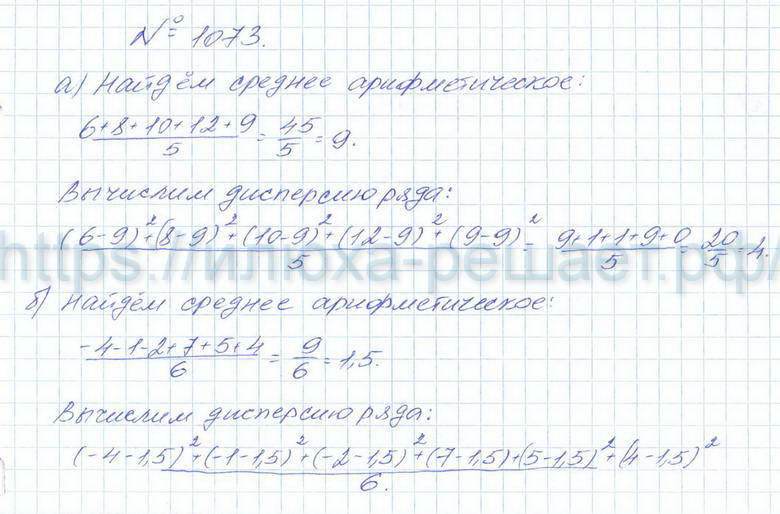 № 1073.
а) Найдём среднее арифметическое:
(6+8+10+12+9)/5 = 45/5 = 9.
Вычислим дисперсию ряда:
((6-9)²+(8-9)²+(10-9)²+(12-9)²+(9-9)²)/5 = (9+1+1+9+0)/5 = 20/5 = 4.
https://илюха-решает.рф/
б) Найдём среднее арифметическое:
(-4-1-2+7+5+4)/6 = 9/6 = 1,5.
Вычислим дисперсию ряда:
((-4-1,5)²+(-1-1,5)²+(-2-1,5)²+(7-1,5)+(5-1,5)²+(4-1,5)²)/6.